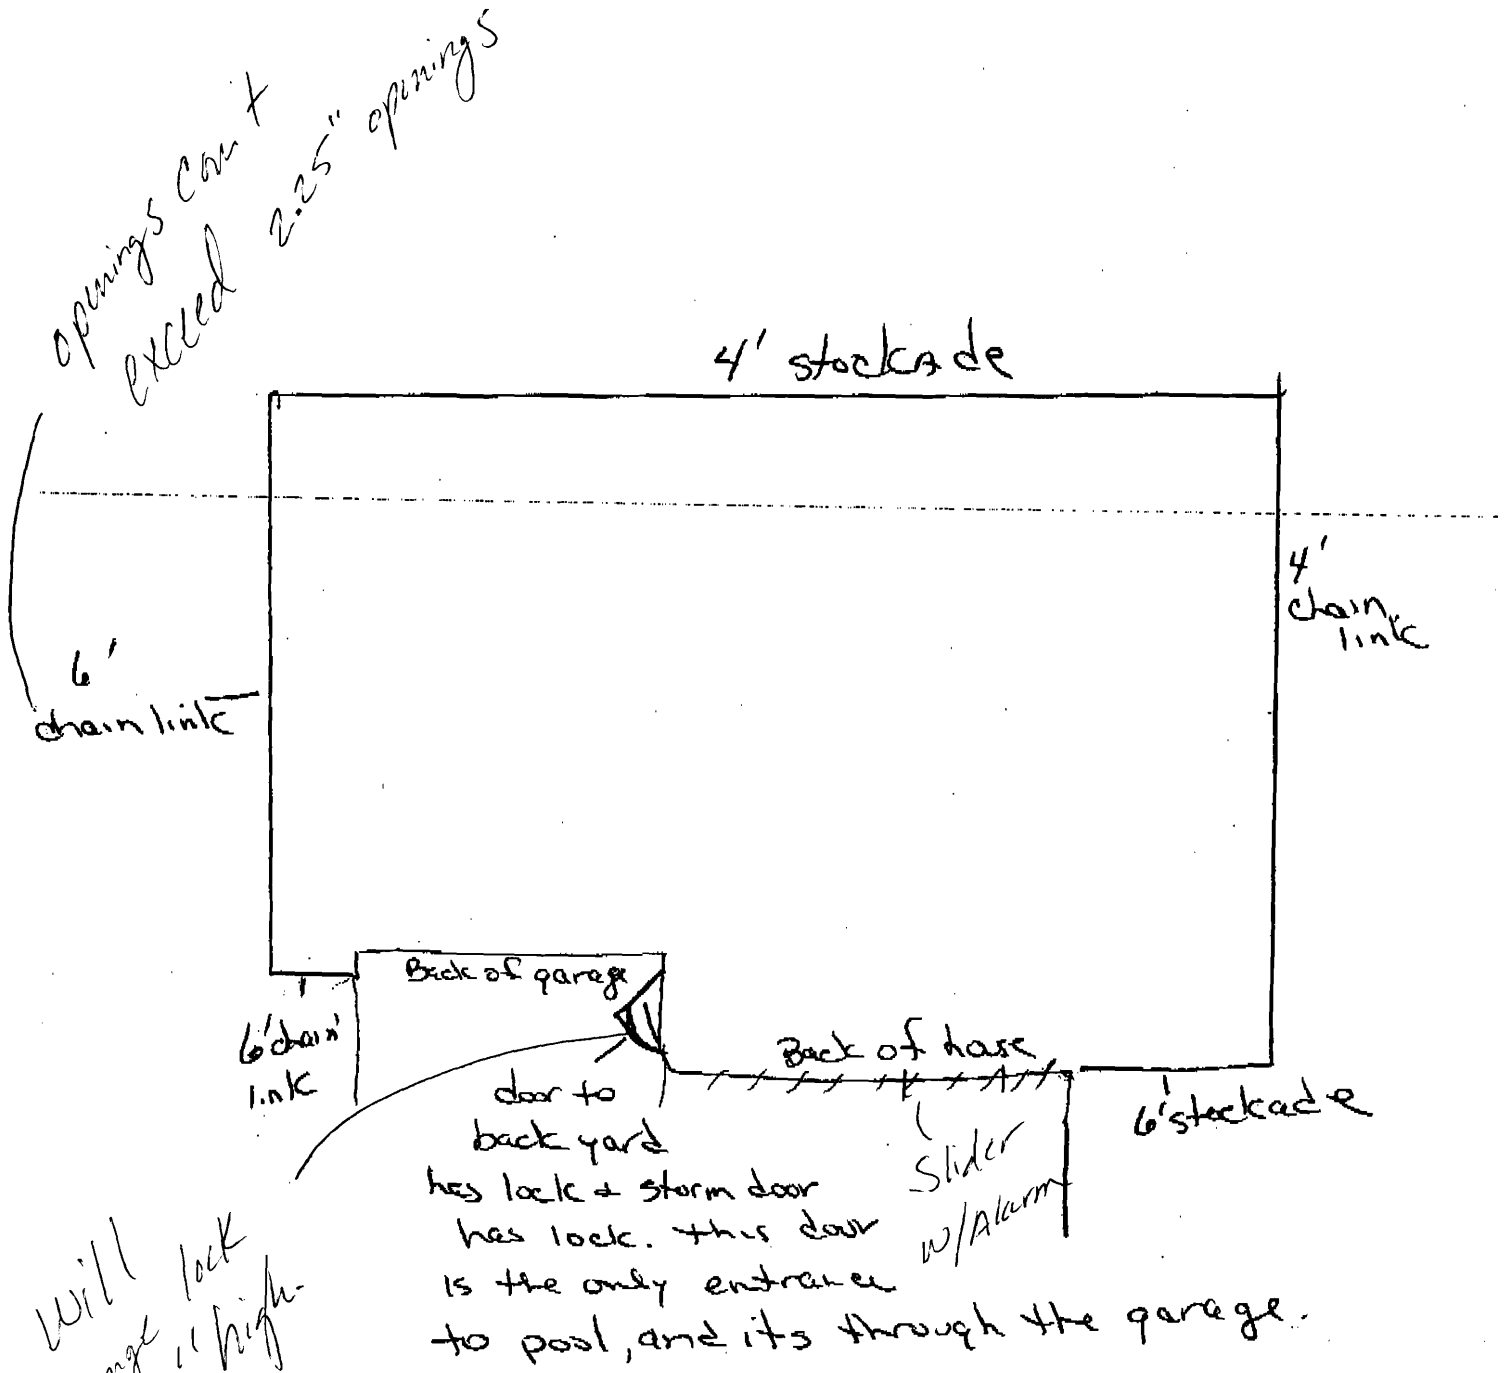 openings can't
exceed 2.25" openings
4' stockade
4'
chain
link
6'
chain link
Back of garage
6' chain
link
Back of house
6' stockade
door to
back yard
has lock & storm door
has lock. this door
is the only entrance
to pool, and its through the garage.
Slider
w/Alarm
will
lock
" high.